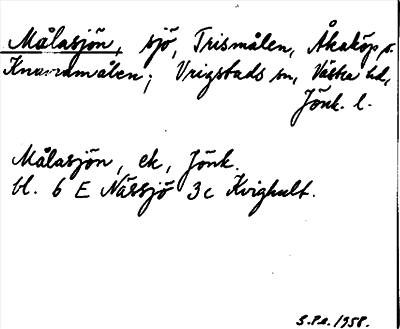 Målasjön, sjö, Trismålen, Åkaköp o.
Knavramålen; Vrigstads sn, Västra hd,
Jönk. l.
Målasjön, ek, Jönk.
bl. 6 E Nässjö 3c Kvighult.
1958.